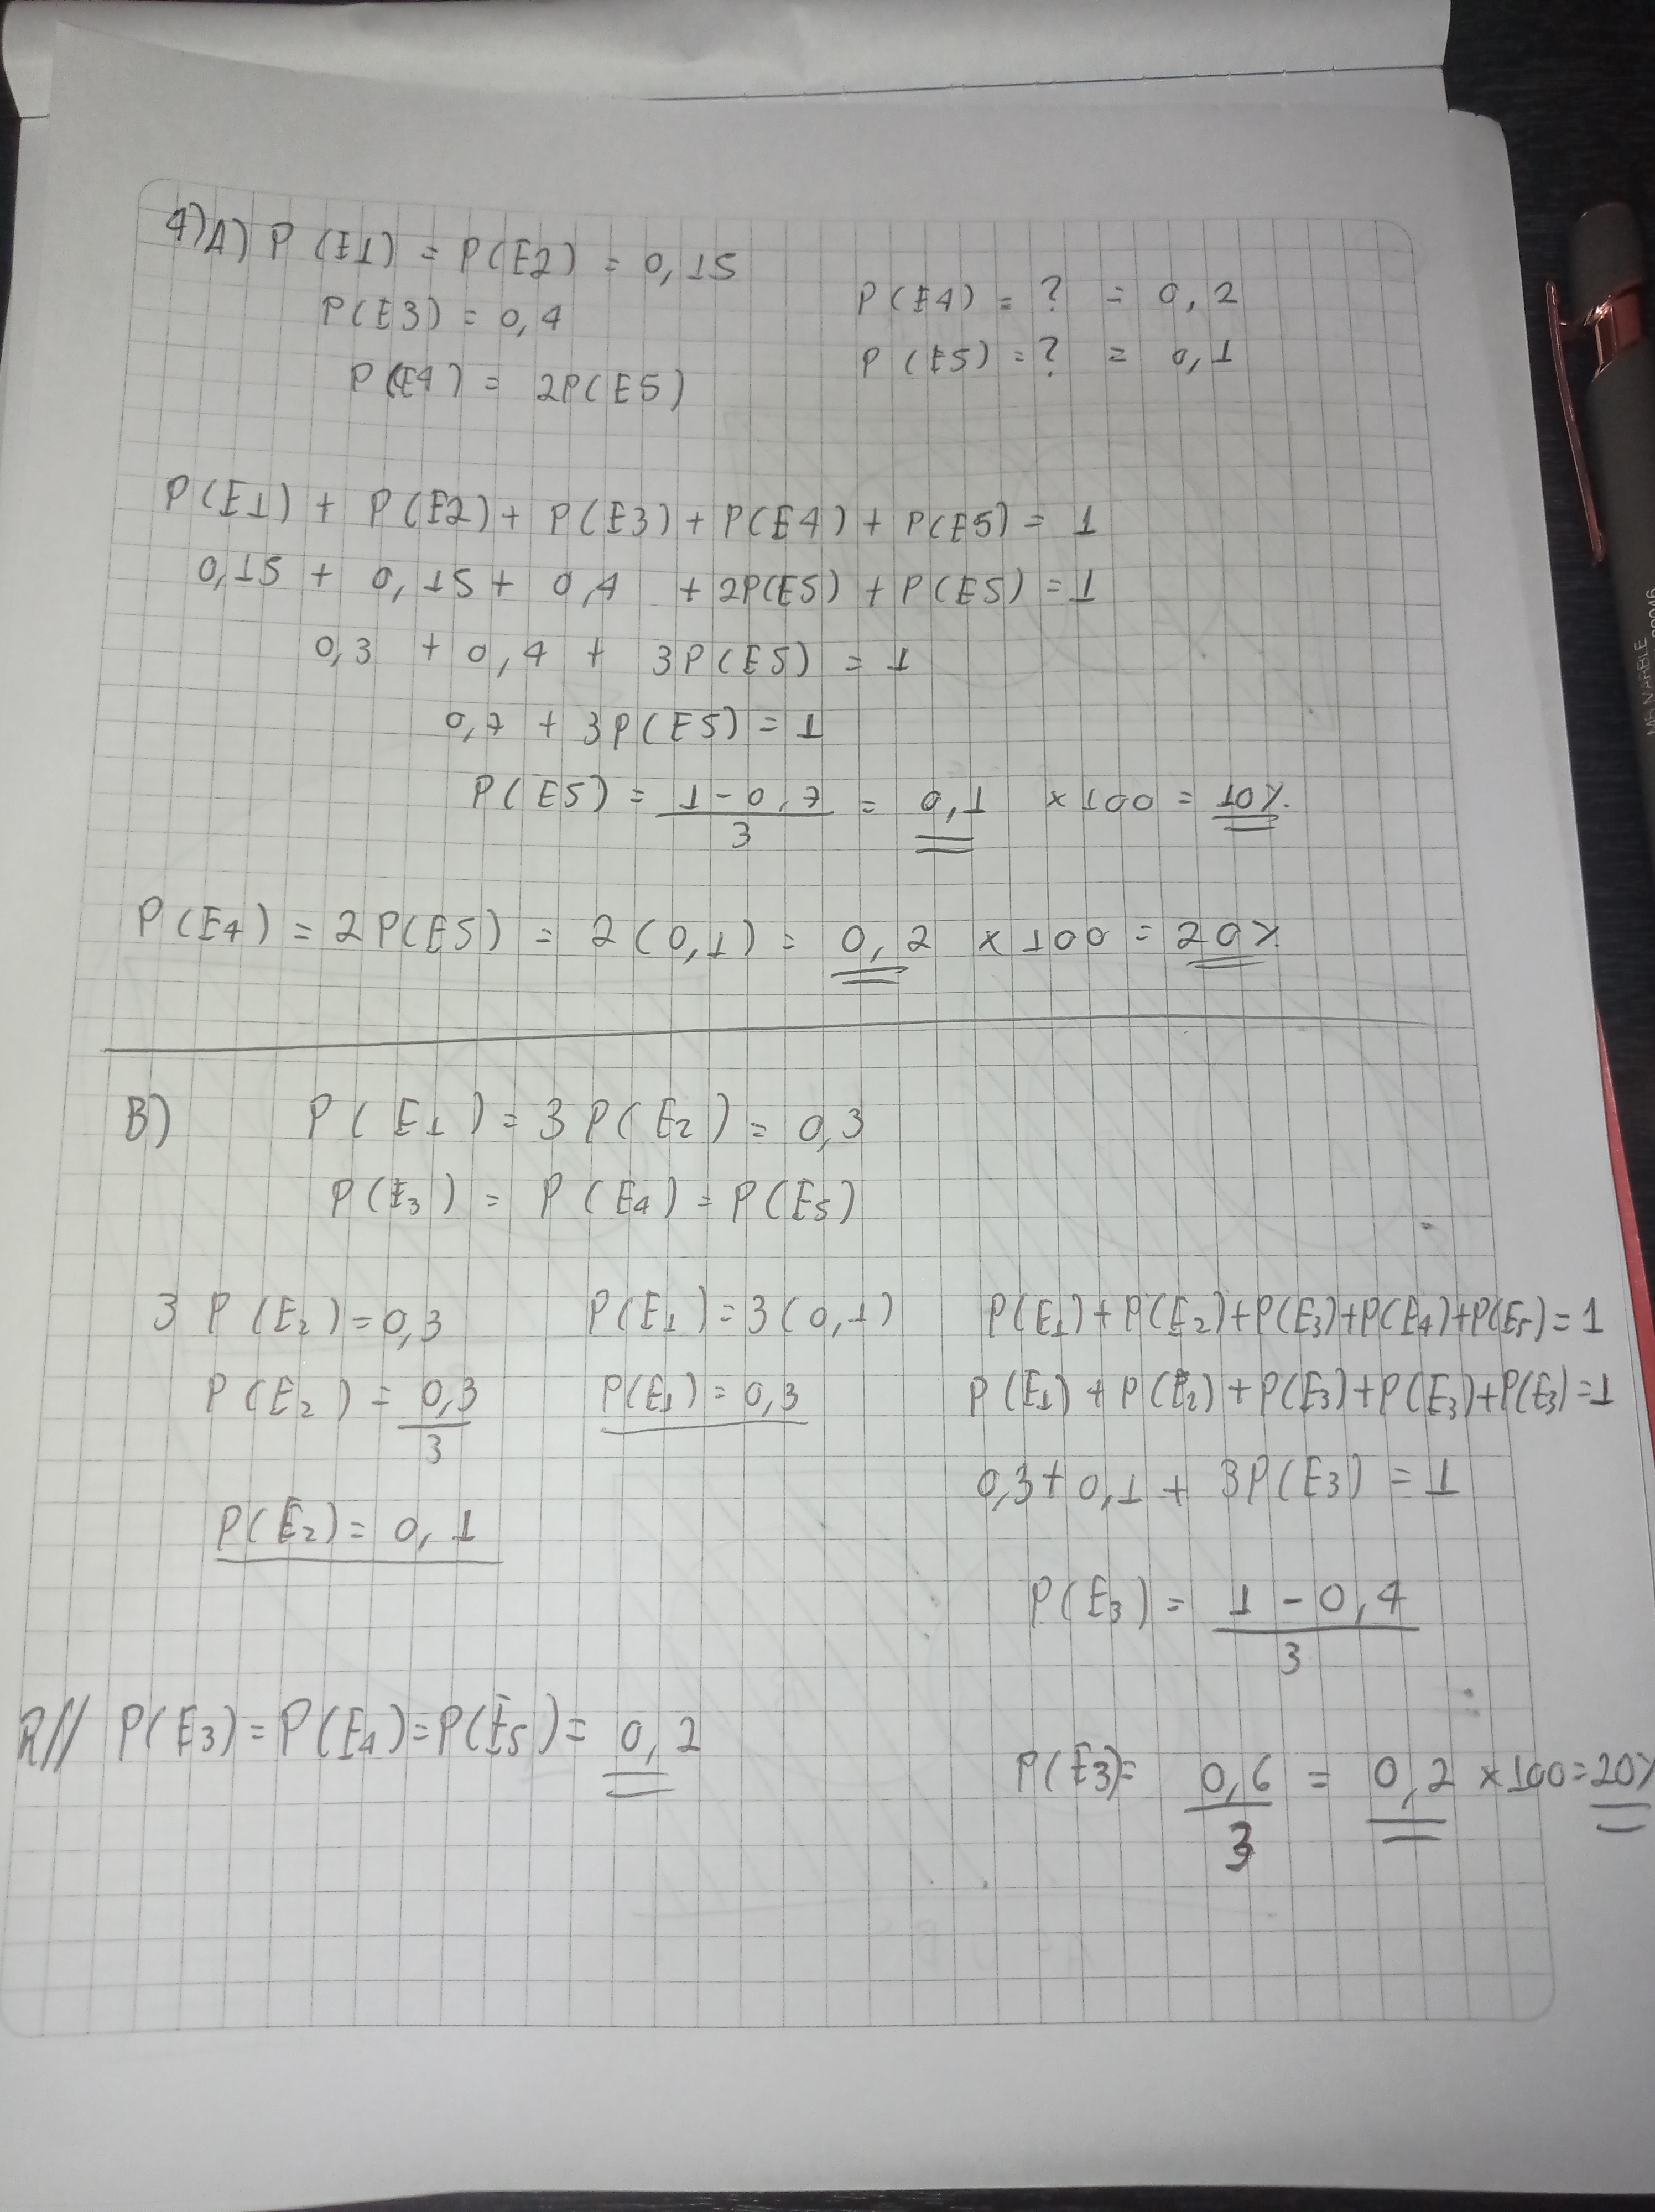 4) A) P (E1) = P(E2) = 0,15
P(E3) = 0,4
P(E4) = 2P(E5)
P(E4) = ? = 0,2
P(E5) = ? = 0,1
P(E1) + P(E2) + P(E3) + P(E4) + P(E5) = 1
0,15 + 0,15 + 0,4 + 2P(E5) + P(E5) = 1
0,3 + 0,4 + 3P(E5) = 1
0,7 + 3P(E5) = 1
P(E5) = (1-0,7)/3 = 0,1 x100 = 10%.
P(E4) = 2P(E5) = 2(0,1) = 0,2 x100 = 20%
B) P(E1) = 3P(E2) = 0,3
P(E3) = P(E4) = P(E5)
3 P(E2) = 0,3
P(E2) = 0,3/3
P(E2) = 0,1
P(E1) = 3(0,1)
P(E1) = 0,3
P(E1)+P(E2)+P(E3)+P(E4)+P(E5)=1
P(E1)+P(E2)+P(E3)+P(E3)+P(E3)=1
0,3+0,1+ 3P(E3) = 1
P(E3) = (1-0,4)/3
P(E3)= 0,6/3 = 0,2 x100=20%
R// P(E3)=P(E4)=P(E5)= 0,2
MARBLE